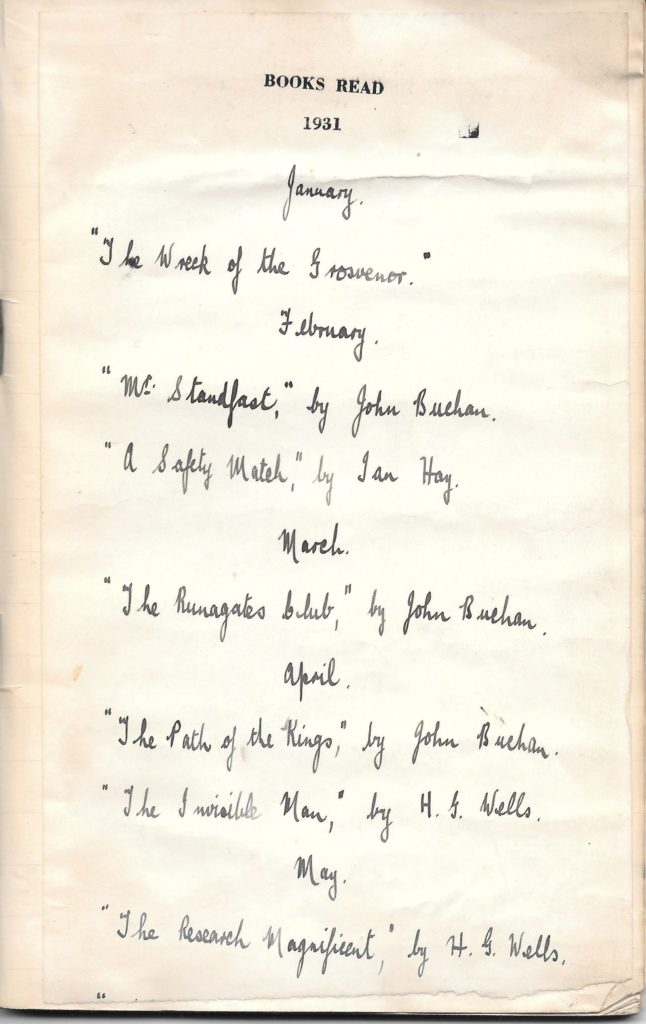 BOOKS READ
1931
January.
"The Wreck of the Grosvenor."
February.
"Mr. Standfast," by John Buchan.
"A Safety Match," by Ian Hay.
March.
"The Runagates Club," by John Buchan.
April.
"The Path of the Kings," by John Buchan.
"The Invisible Man," by H. G. Wells.
May.
"The Research Magnificent," by H. G. Wells.
"